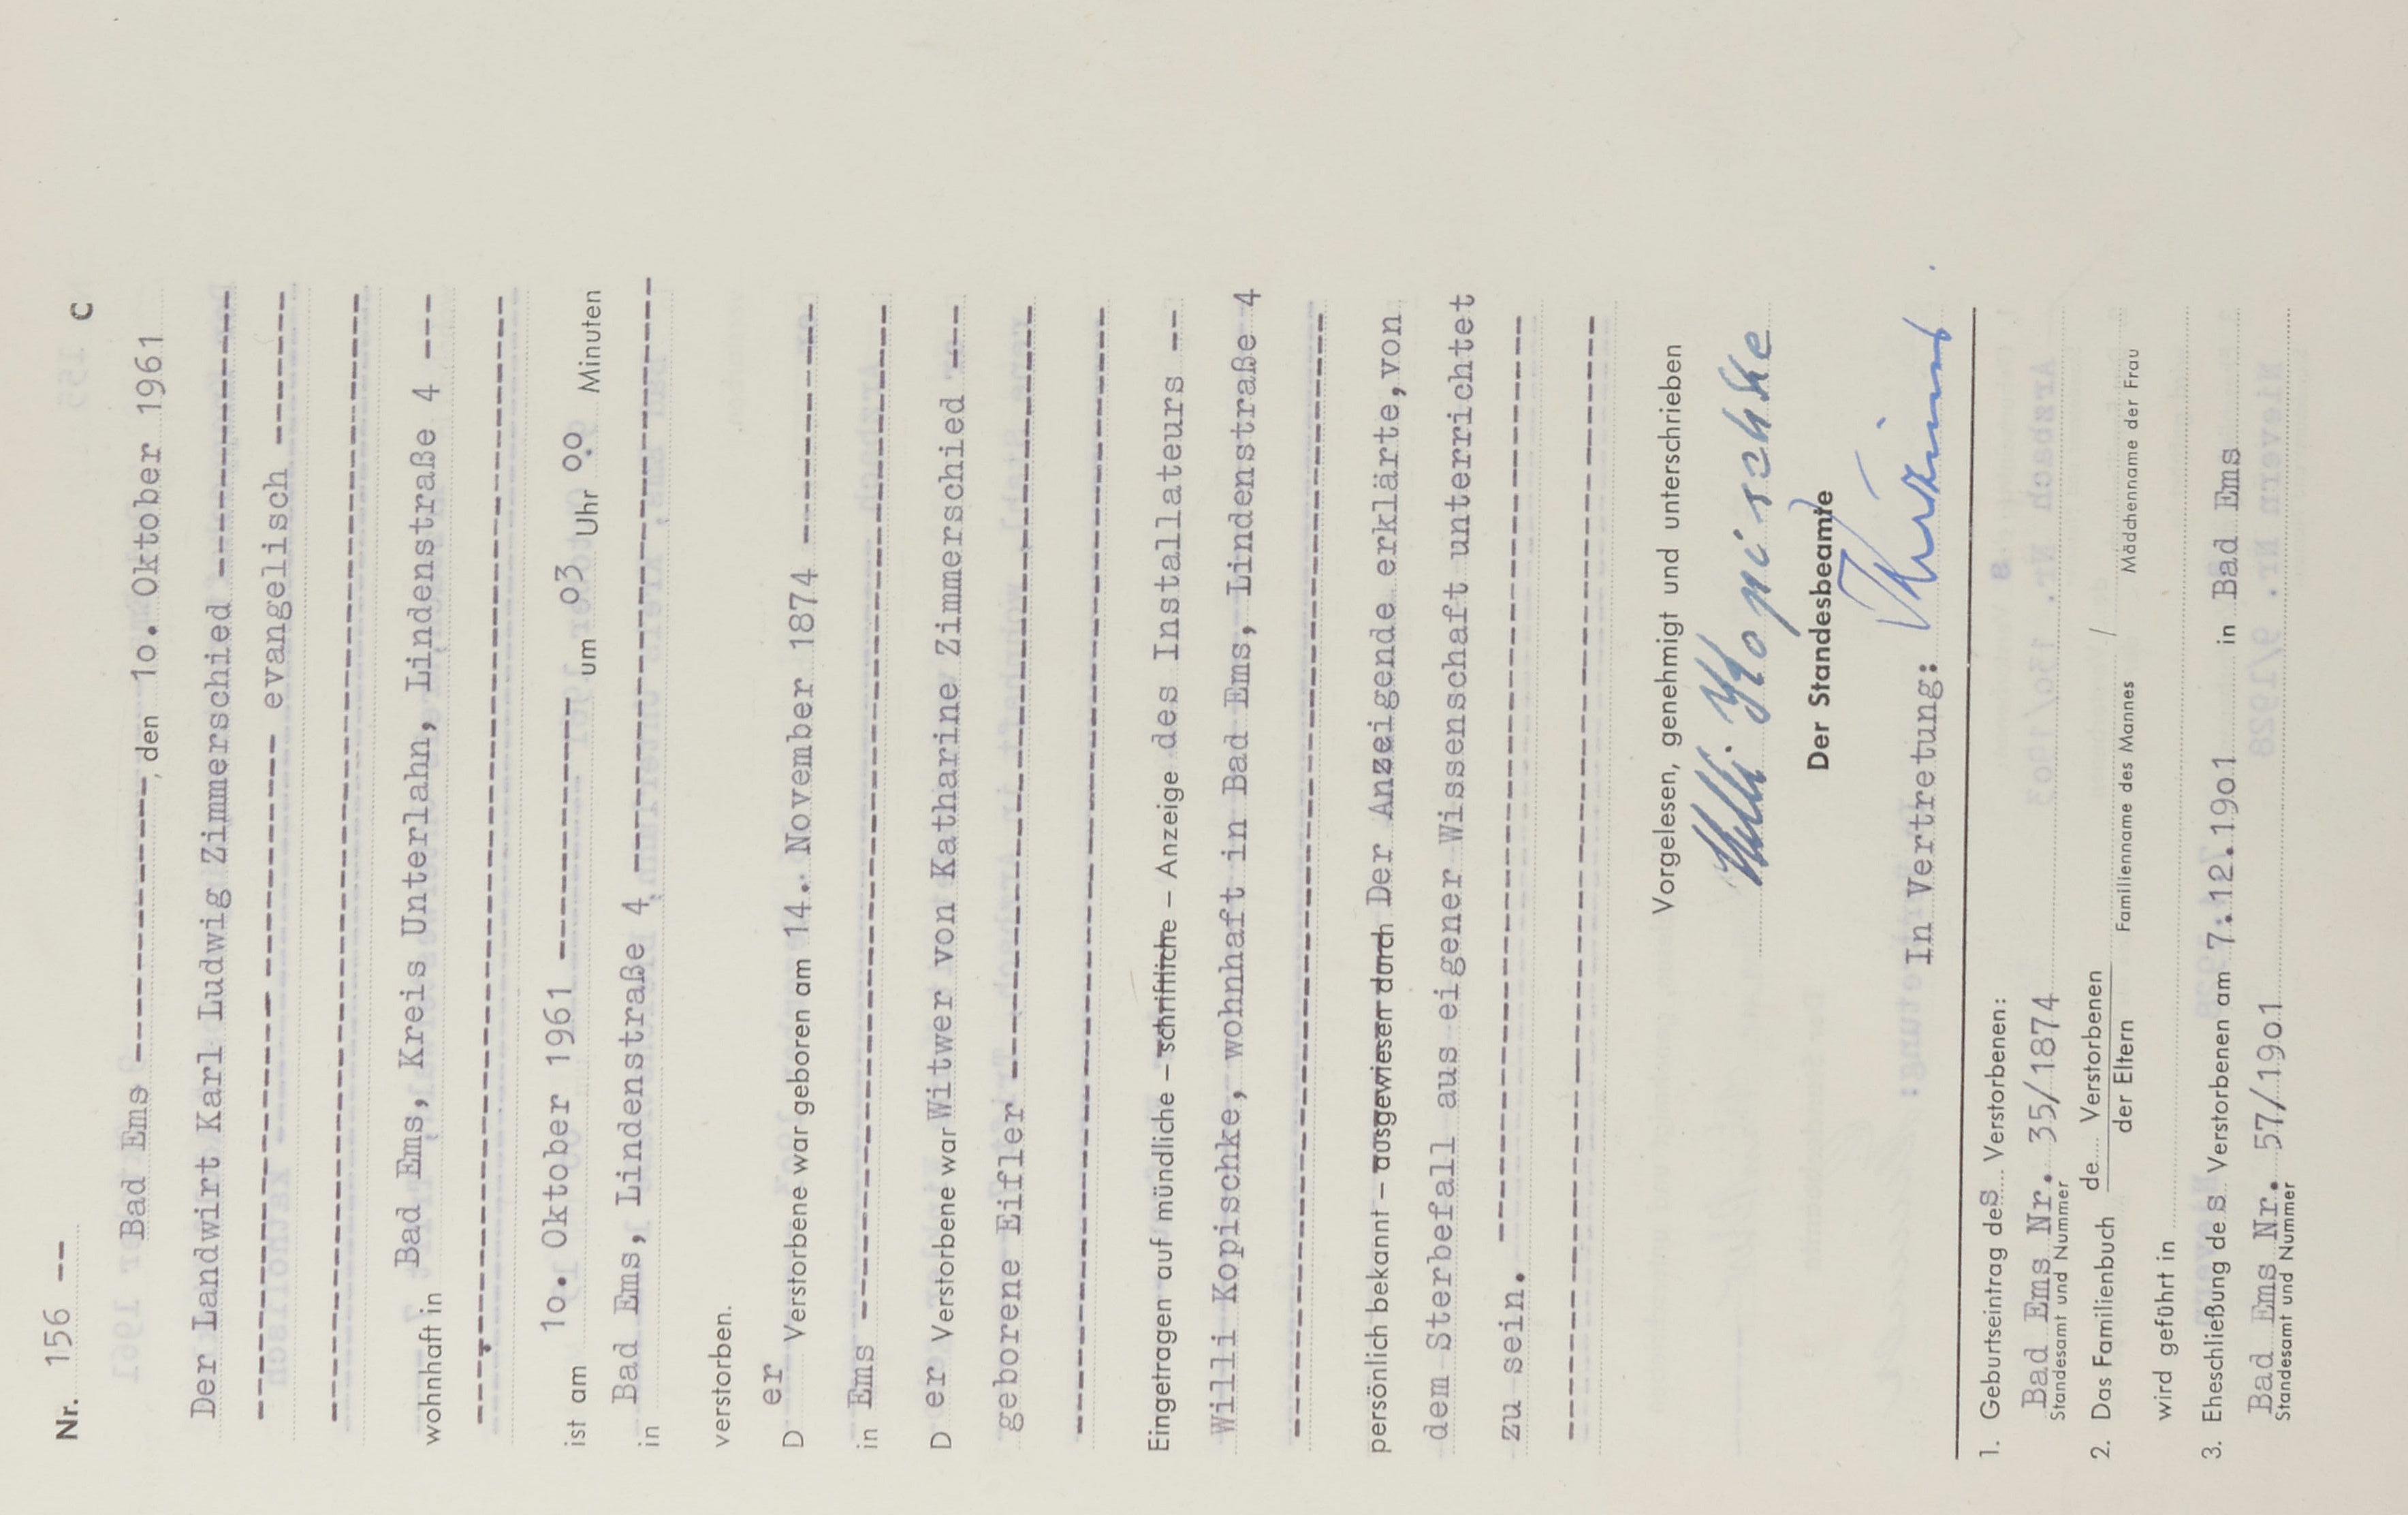 Nr. 156 -- C
Bad Ems ----------------, den 1o. Oktober 1961
Der Landwirt Karl Ludwig Zimmerschied ----------------
---------------------------------------- evangelisch --------
----------------------------------------------------------------
wohnhaft in Bad Ems, Kreis Unterlahn, Lindenstraße 4 ---
----------------------------------------------------------------
ist am 1o. Oktober 1961 --------------- um o3 Uhr oo Minuten
in Bad Ems, Lindenstraße 4 --------------------------------
verstorben.
D er Verstorbene war geboren am 14. November 1874 --------------
in Ems --------------------------------------------------------
D er Verstorbene war Witwer von Katharine Zimmerschied ---
geborene Eifler --------------------------------------------
----------------------------------------------------------------
Eingetragen auf mündliche – schriftliche – Anzeige des Installateurs --
Willi Kopischke, wohnhaft in Bad Ems, Lindenstraße 4
----------------------------------------------------------------
persönlich bekannt – ausgewiesen durch Der Anzeigende erklärte,von
dem Sterbefall aus eigener Wissenschaft unterrichtet
zu sein. ----------------------------------------------------
----------------------------------------------------------------
Vorgelesen, genehmigt und unterschrieben
Willi Kopischke
Der Standesbeamte
In Vertretung:
1. Geburtseintrag des Verstorbenen:
Bad Ems Nr. 35/1874
Standesamt und Nummer
2. Das Familienbuch de Verstorbenen /
der Eltern Familienname des Mannes Mädchenname der Frau
wird geführt in
3. Eheschließung des Verstorbenen am 7.12.19o1 in Bad Ems
Bad Ems Nr. 57/19o1
Standesamt und Nummer